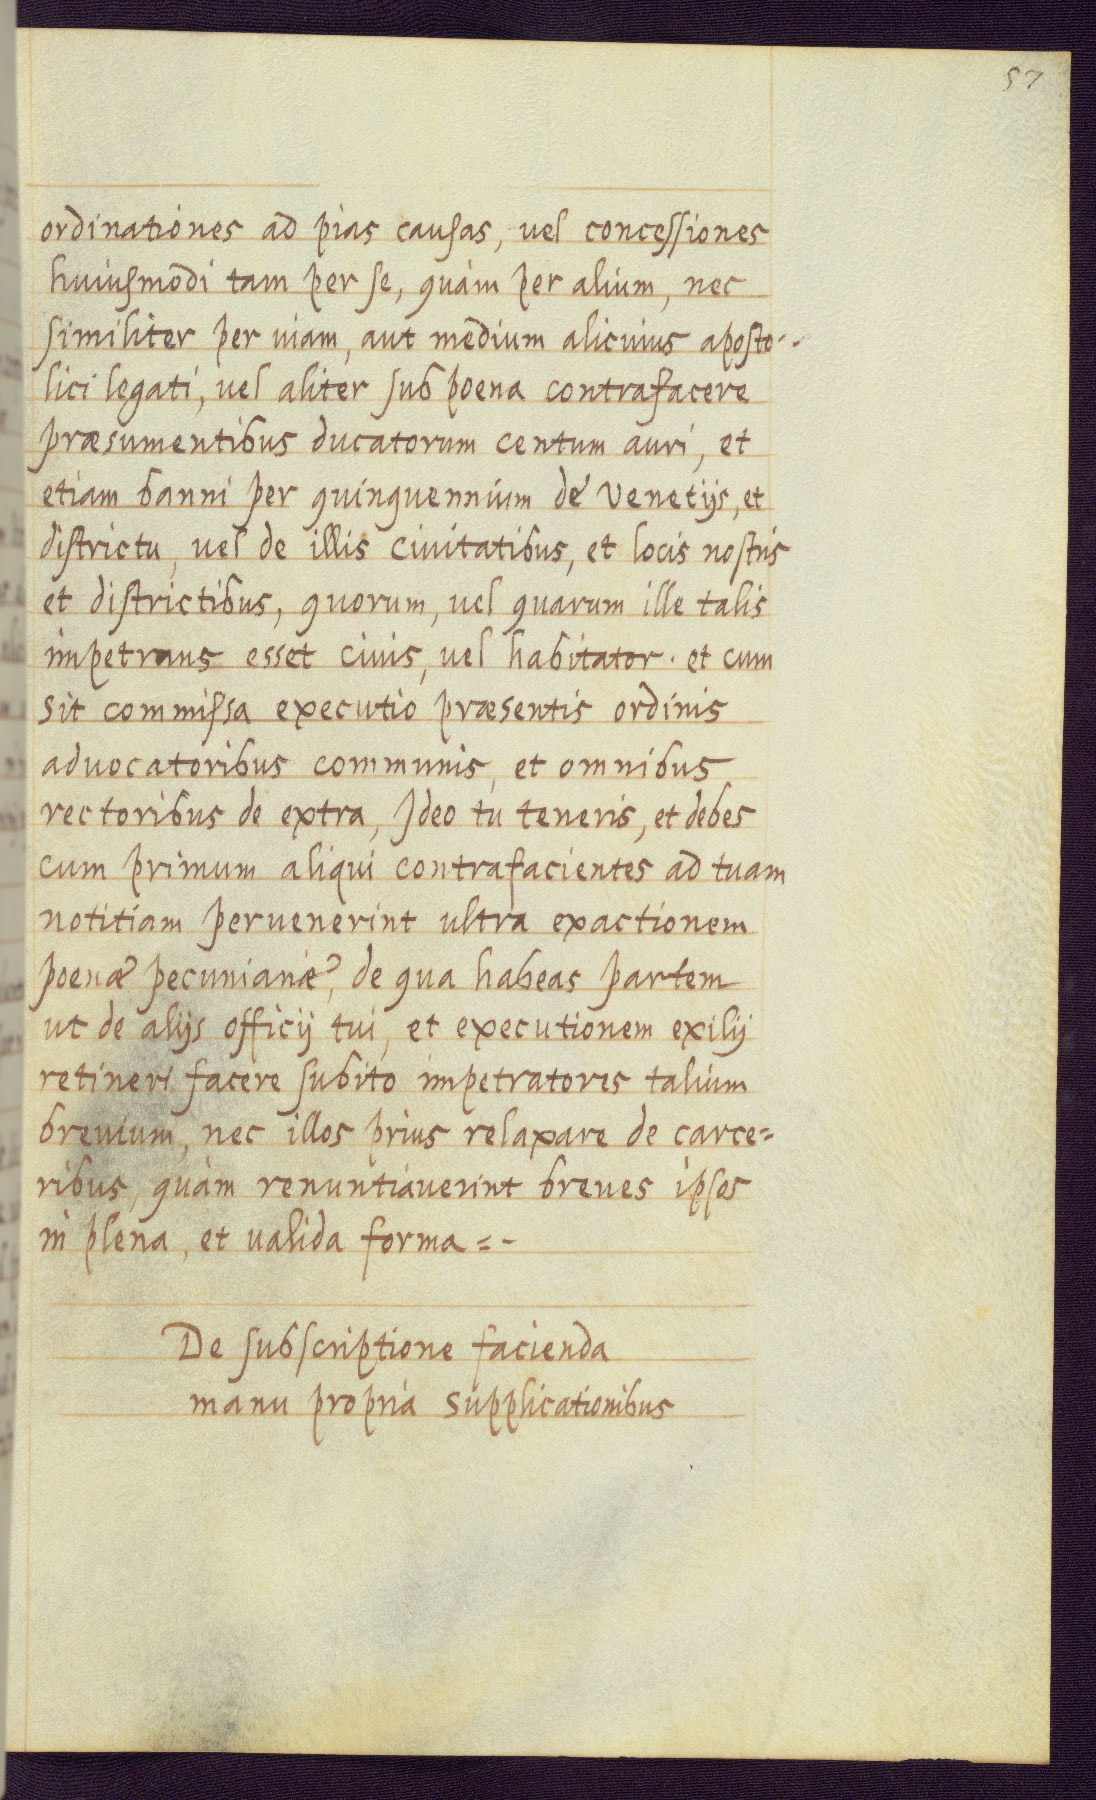 57
ordinationes ad pias causas, vel concessiones
huiusmodi tam per se, quàm per alium, nec
similiter per uiam, aut medium alicuius aposto--
lici legati, vel aliter sub poena contrafacere
præsumentibus ducatorum centum auri, et
etiam banni per quinquennium de Venetijs, et
districtu, vel de illis ciuitatibus, et locis nostris
et districtibus, quorum, vel quarum ille talis
impetrans esset ciuis, vel habitator. et cum
sit commissa executio præsentis ordinis
aduocatoribus communis, et omnibus
rectoribus de extra, Ideo tu teneris, et debes
cum primum aliqui contrafacientes ad tuam
notitiam peruenerint ultra exactionem
poenæ pecuniariæ, de qua habeas partem
ut de alijs officij tui, et executionem exilij
retineri facere subito impetratores talium
breuium, nec illos prius relaxare de carce=
ribus, quàm renuntiauerint breues ipsos
in plena, et ualida forma=-
De subscriptione facienda
manu propria supplicationibus